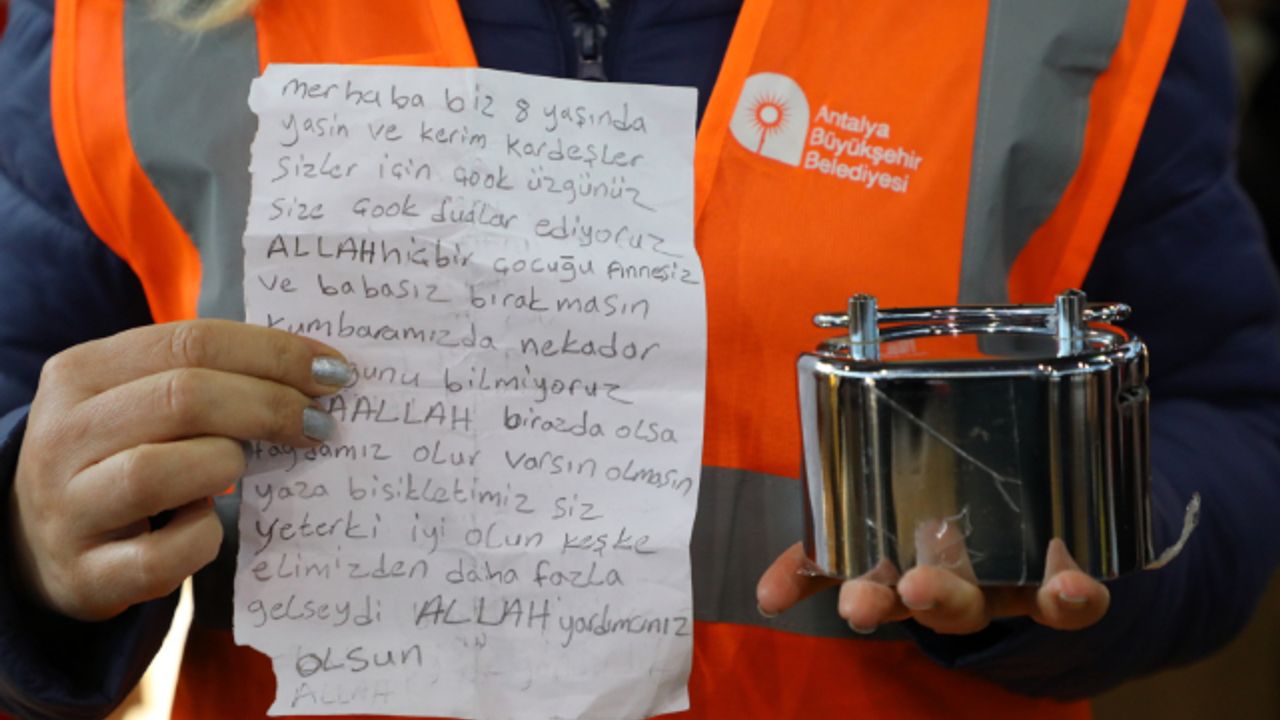 merhaba biz 8 yaşında
yasin ve kerim kardeşler
sizler için çook üzgünüz
size çook dualar ediyoruz
ALLAH hiçbir çocuğu Annesiz
ve babasız bırakmasın
kumbaramızda nekadar
bilmiyoruz
birazda olsa
faydamız olur varsın olmasın
yaza bisikletimiz siz
yeterki iyi olun keşke
elimizden daha fazla
gelseydi ALLAH yardımcınız
OLSUN
ALLAH
Antalya
Büyükşehir
Belediyesi